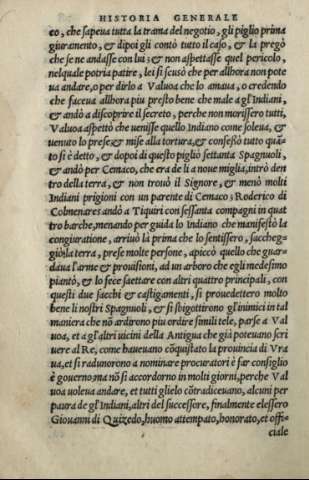 HISTORIA GENERALE
co, che sapeua tutta la trama del negotio, gli piglio prima
giuramento, & dipoi gli contò tutto il caso, & la pregò
che se ne andasse con lui; & non aspettasse quel pericolo,
nelquale potria patire, lei si scusò che per allhora non pote
ua andare, o per dirlo a Valuoa che lo amaua, o credendo
che faceua allhora piu presto bene che male a gl'Indiani,
& andò a discoprire il secreto, perche non morissero tutti,
Valuoa aspettò che venisse quello Indiano come soleua, &
venuto lo prese & mise alla tortura, et confessò tutto quã-
to si è detto, & dopoi di questo pigliò settanta Spagnuoli,
& andò per Cemaco, che era de li a noue miglia, intrò den
tro della terra, & non trouò il Signore, & menò molti
Indiani prigioni con un parente di Cemaco; Roderico di
Colmenares andò a Tiquiri con sessanta compagni in quat
tro barche, menando per guida lo Indiano che manifestò la
congiuratione, arriuò la prima che lo sentissero, saccheg-
giò la terra, prese molte persone, apiccò quello che guar-
daua l'arme & prouisioni, ad un arboro che egli medesimo
piantò, & lo fece saettare con altri quattro principali, con
questi due sacchi & castigamenti, si prouedettero molto
bene li nostri Spagnuoli, & si sbigottirono gl'inimici in tal
maniera che nõ ardirono piu ordire simili tele, parse a Val
uoa, et a gl'altri uicini della Antigua che già poteuano scri
uere al Re, come haueuano cõquistato la prouincia di Vra
ua, et si radunorono a nominare procuratori è far consiglio
è gouerno; ma nõ si accordorno in molti giorni, perche Val
uoa uoleua andare, et tutti glielo cõtradiceuano, alcuni per
paura de gl'Indiani, altri del successore, finalmente elessero
Giouanni di Quizedo, huomo attempato, honorato, et offi-
ciale